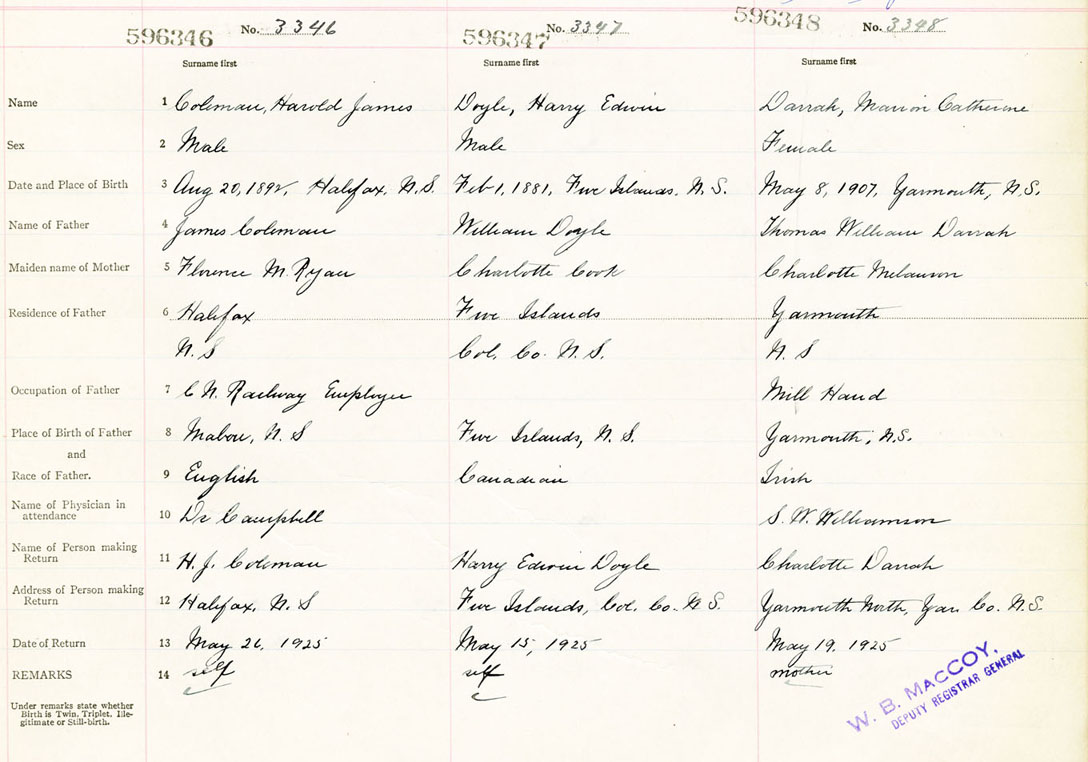 596346 No. 3346 596347 No. 3347 596348 No. 3348
Surname first Surname first Surname first
Name 1 Coleman, Harold James Doyle, Harry Edwin Darrah, Marion Catherine
Sex 2 Male Male Female
Date and Place of Birth 3 Aug 20, 1892, Halifax, N.S. Feb 1, 1881, Five Islands, N.S. May 8, 1907, Yarmouth, N.S.
Name of Father 4 James Coleman William Doyle Thomas William Darrah
Maiden name of Mother 5 Florence M. Ryan Charlotte Cook Charlotte Melanson
Residence of Father 6 Halifax Five Islands Yarmouth
N.S Col. Co. N.S. N.S
Occupation of Father 7 C N. Railway Employee Mill Hand
Place of Birth of Father 8 Mabou, N.S Five Islands, N.S. Yarmouth, N.S.
and
Race of Father. 9 English Canadian Irish
Name of Physician in
attendance 10 Dr Campbell S. W. Williamson
Name of Person making
Return 11 H. J. Coleman Harry Edwin Doyle Charlotte Darrah
Address of Person making
Return 12 Halifax, N.S Five Islands, Col. Co. N.S. Yarmouth North, Yar. Co. N.S.
Date of Return 13 May 26, 1925 May 15, 1925 May 19, 1925
REMARKS 14 self self mother
Under remarks state whether
Birth is Twin, Triplet, Ille-
gitimate or Still-birth.
W. B. MACCOY,
DEPUTY REGISTRAR GENERAL